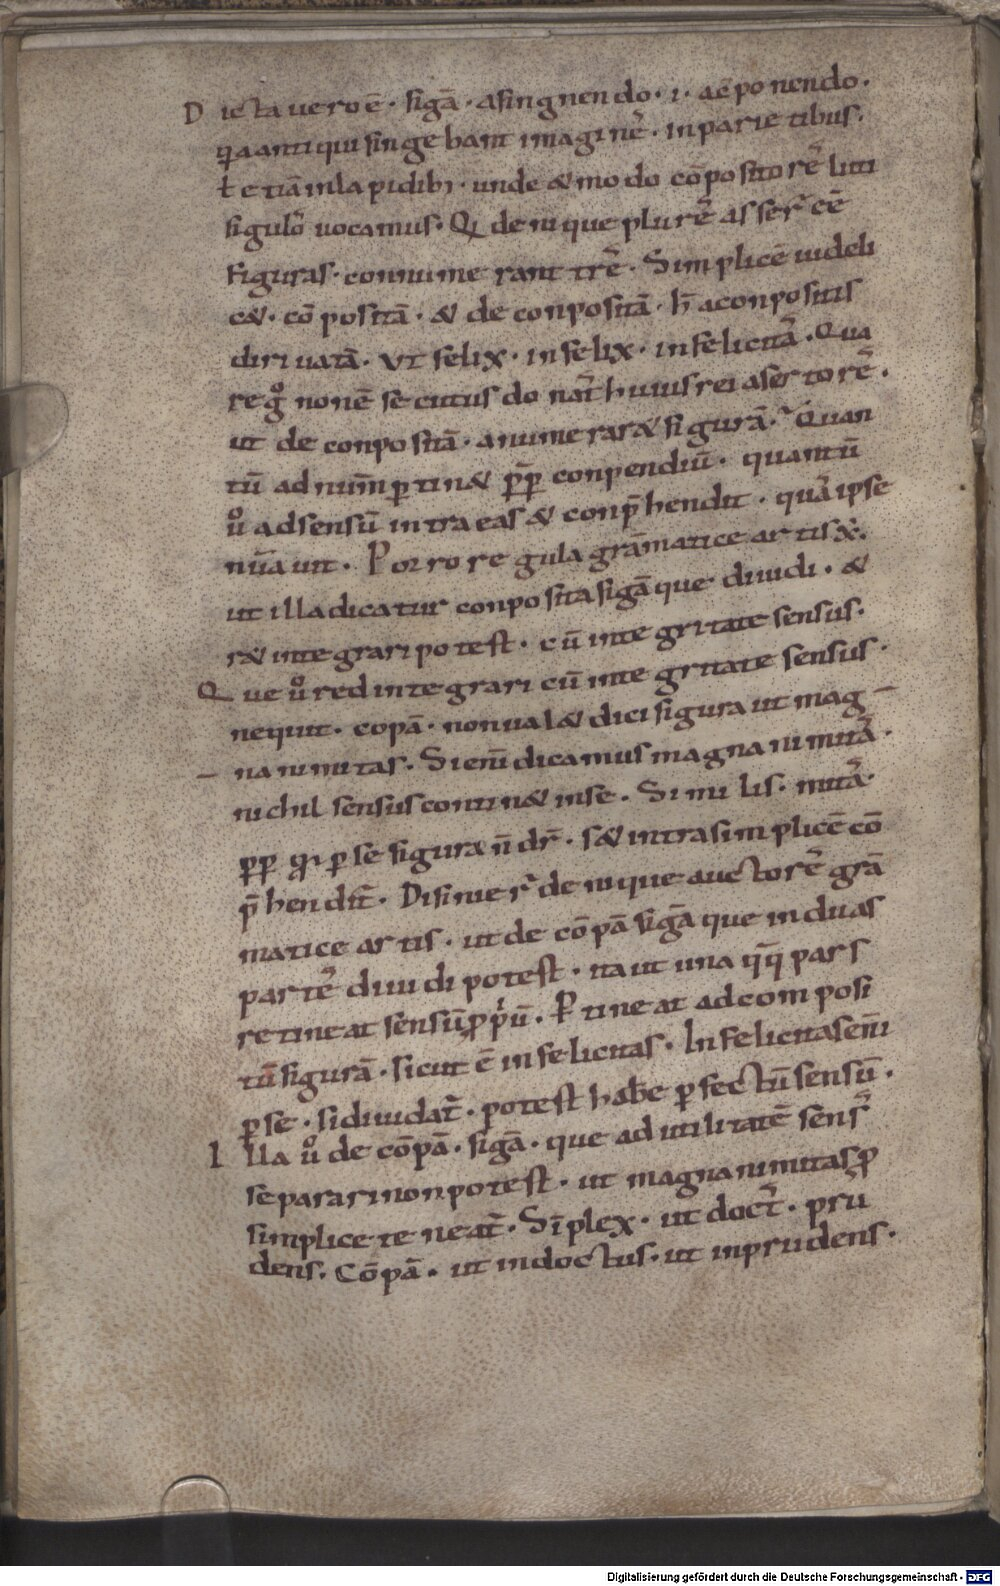 Dicta uero ē· figā· a fingnendo· i· aē ponendo·
qia antiqui fingebant imaginē· in parietibus·
t etiā in lapidib; · unde & modo cōpositorē luti
figulū uocamus· Qi denique plurē asser̄ cē
figuras· connumerant trē· Simplicē uideli
c&· cōpositā· & deconpositā· h̄ a conpositis
diriuatā· Ut felix· infelix· infelicitā· Qua
re g̊ non ē secutus donat̄ huius rei asertorē·
ut deconpositā· anumerar& figurā· Quan
tū ad num̄ ptin& pp conpendiū· quantū
ů ad sensū intra eas & conp̄hendit· quā ipse
nūauit· Porro regula grāmatice artis ē·
ut illa dicatur conposita figā que diuidi· &
r& integrari potest· cū integritate sensus·
Que ů redintegrari cū integritate sensus
nequit· copā· non ual& dici figura ut mag
nanimitas· Si eni dicamus magna nimitā·
nichil sensus contin& in se· Similis· mitā·
pp qi p se figura n̄ dr̄· s& intra simplicē cō
p̄hendit̄· Difinier̄ denique auctorē grā
matice artis· ut decōpā figā que in duas
partē diuidi potest· ita ut una qq̄ pars
retineat sensū ppiū· Ptineat ad composi
tū figurā· sicut ē infelicitas· Infelicitas eni
p se· si diuidat̄· potest habe pfectū sensū·
Illa ů decōpā· figā· que ad utilitatē sens̄
separari non potest· ut magnanimitas p
simplice teneat̄· Sīplex· ut doct̄· pru
dens· Cōpā· ut indoctus· ut inprudens·
Digitalisierung gefördert durch die Deutsche Forschungsgemeinschaft - DFG